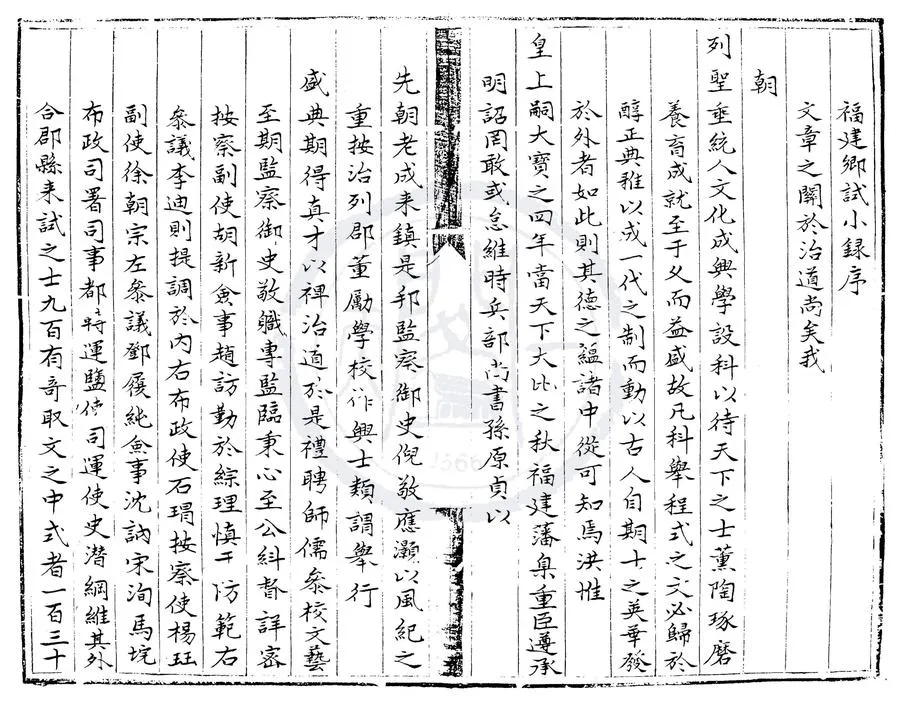 福建鄉試小録序
文章之關於治道尚矣我
朝
列聖垂統人文化成興學設科以待天下之士薰陶琢磨
養育成就至于久而益盛故凡科舉程式之文必歸於
醇正典雅以成一代之制而動以古人自期士之英華發
於外者如此則其德之蘊諸中從可知焉洪惟
皇上嗣大寶之四年當天下大比之秋福建藩臬重臣遵承
明詔罔敢或怠維時兵部尚書孫原貞以
先朝老成来鎮是邦監察御史倪敬應灝以風紀之
重按治列郡董勵學校作興士類謂舉行
盛典期得真才以裨治道於是禮聘師儒叅校文藝
至期監察御史敬職專監臨秉心至公糾督詳密
按察副使胡新僉事趙訪勤於綜理慎于防範右
叅議李迪則提調於内右布政使石瑁按察使楊珏
副使徐朝宗左叅議鄧履純僉事沈訥宋洵馬垸
布政司署司事都轉運鹽使司運使史潛綱維其外
合郡縣来試之士九百有奇取文之中式者一百三十